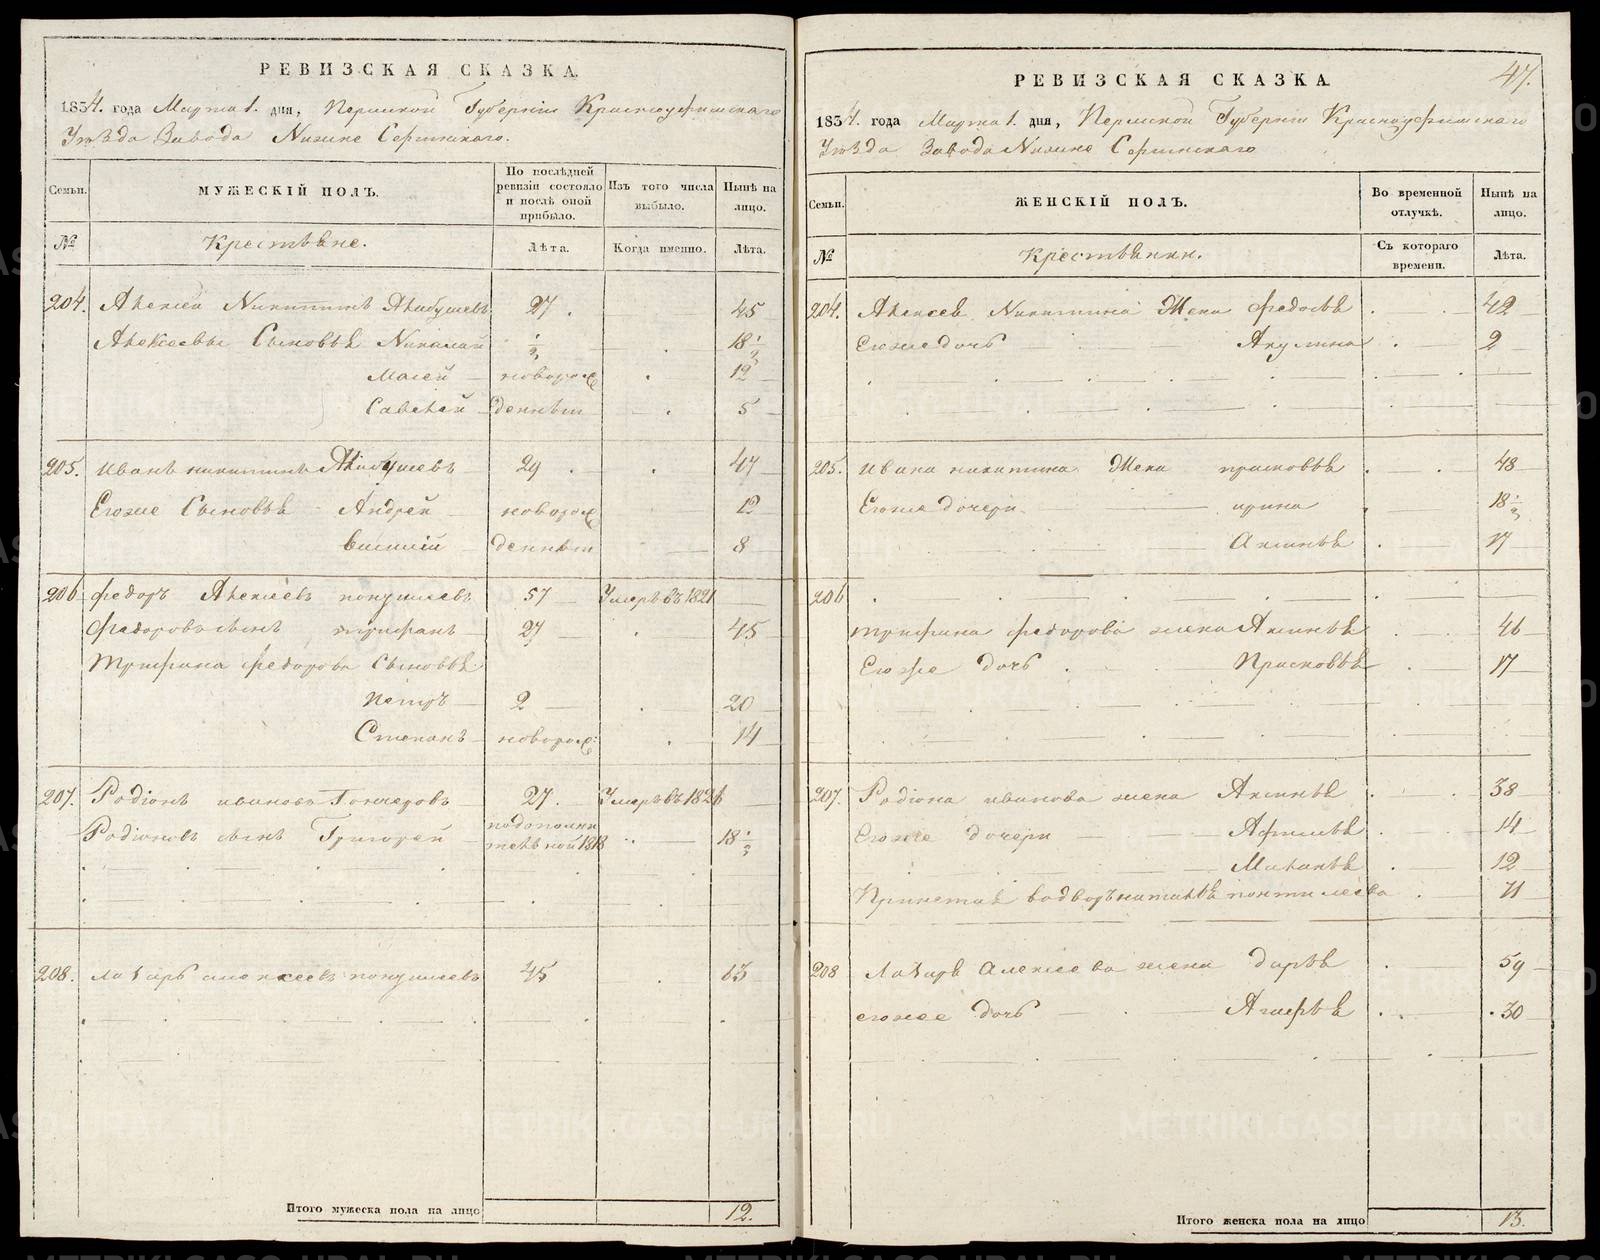 РЕВИЗСКАЯ СКАЗКА.
1834. года Марта 1. дня, Пермской Губернiи Красноуфимскаго
Уѣзда Завода Нижне Сергинскаго.
Семьи.
МУЖЕСКIЙ ПОЛЪ.
По послѣдней ревизiи состояло и послѣ оной прибыло.
Изъ того числа выбыло.
Нынѣ на лицо.
№
Крестьяне.
Лѣта.
Когда именно.
Лѣта.
204. Алексей Никитинъ 27. 45
Алексеевы Сыновья Николай ½ 18½
Мосей новорож 12
Савелей деннып 5
205. Иванъ никитинъ 29 . 47
Егоже Сыновья Андрей новорож 12
Василiй 8
206 федоръ Алексѣевъ 57 Умеръ въ 1821
Федоровъ сынъ трифанъ 27 45
Трифана федорова Сыновья
Петръ 2 20
Степанъ новорож: 14
207. Родiонъ ивановъ Гончаровъ 27. Умеръ въ 1826
Родiоновъ сынъ Григорей 1818 18½
208. лазарь алексеевъ 45 63
Итого мужеска пола на лицо 12.
47.
РЕВИЗСКАЯ СКАЗКА.
1834. года Марта 1. дня, Пермской Губернiи Красноуфимскаго
Уѣзда Завода Нижне Сергинскаго
Семьи.
ЖЕНСКIЙ ПОЛЪ.
Во временной отлучкѣ.
Нынѣ на лицо.
№
Крестьянки.
Съ котораго времени.
Лѣта.
204. Алексея Никитина Жена федосья 42
Егоже дочь Акулина 2
205. Ивана никитина Жена прасковья 48
Егоже дочери ирина 18½
Аксинья 17
206
трифана федорова жена Аксинья 46
Егоже дочь Прасковья 17
207. Родiона иванова жена Аксинья 38
Егоже дочери Афимья 14
Маланья 12
71
208 Лазаря Алексеева жена дарья 59
егоже дочь Агафья 30
Итого женска пола на лицо 13.
METRIKI.GASO-URAL.RU